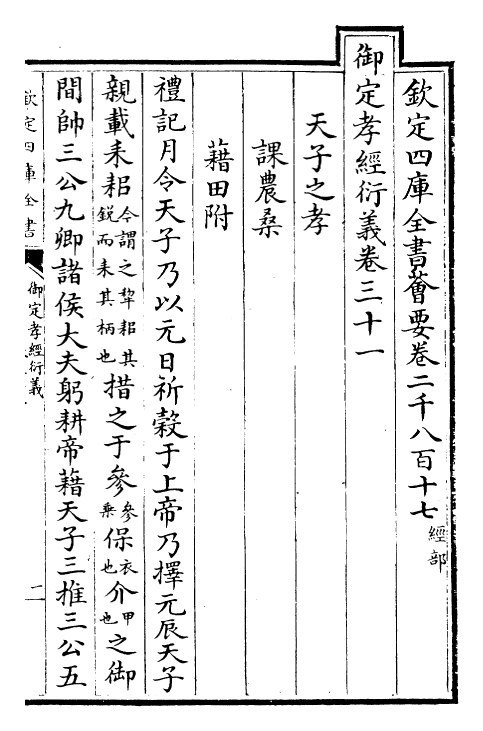 欽定四庫全書薈要卷二千八百十七 經部
御定孝經衍義卷三十一
天子之孝
課農桑
藉田附
禮記月令天子乃以元日祈穀于上帝乃擇元辰天子
親載耒耜今謂之犂耜其銳而耒其柄也措之于參參乘保衣也介甲也之御
間帥三公九卿諸侯大夫躬耕帝藉天子三推三公五
欽定四庫全書
御定孝經衍義
一